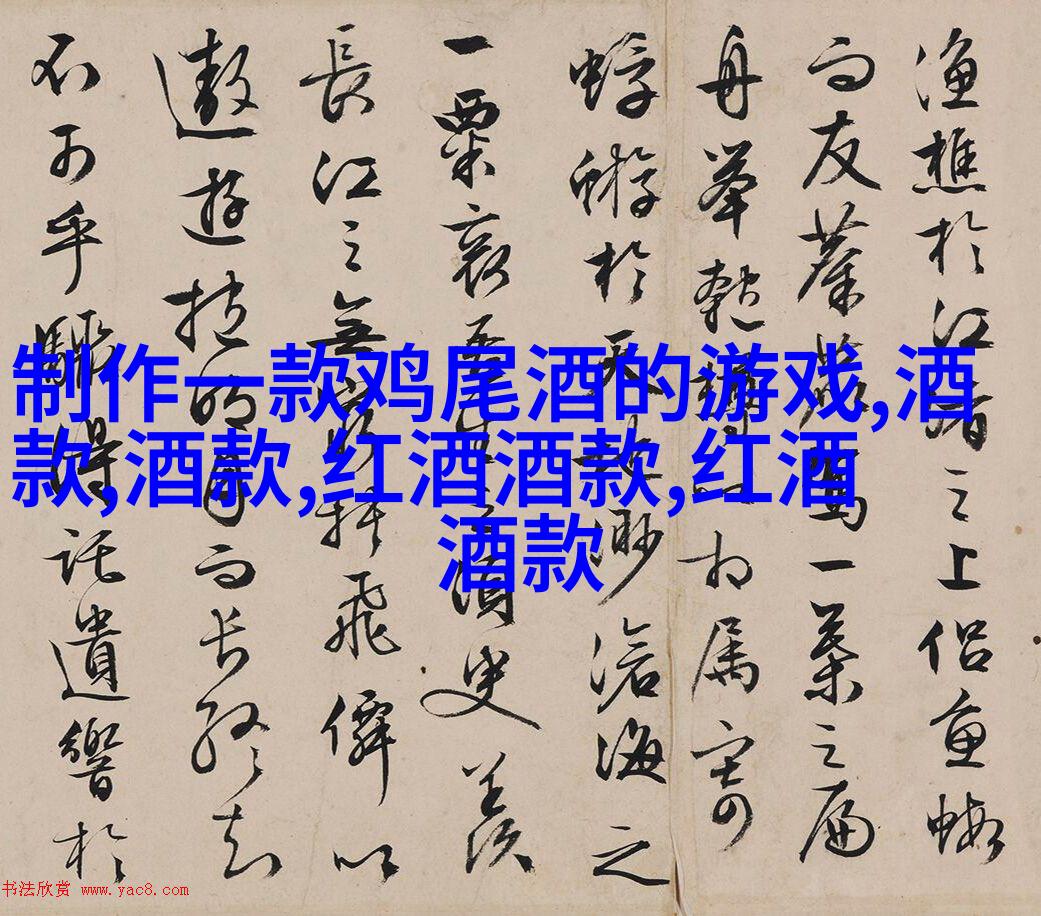 渔樵於江渚之上侣鱼蝦
而友麋鹿駕一葉之扁
舟舉匏樽以相属寄
蜉蝣於天地渺滄海之
一粟哀吾生之須臾羨
長江之無窮挾飛僊以
遨遊抱明月而長終知
不可乎驟得託遺響於
制作一款鸡尾酒的游戏,酒
款,酒款,红酒酒款,红酒
酒款
书法欣赏 www.yac8.com